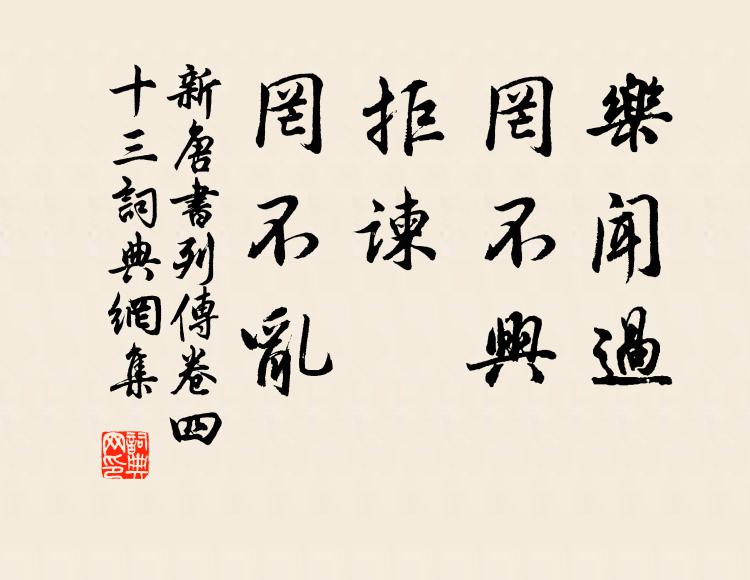 樂聞過
罔不興
拒諫
罔不亂
新唐書列傳卷四
十三詞典網集
詞典
网印